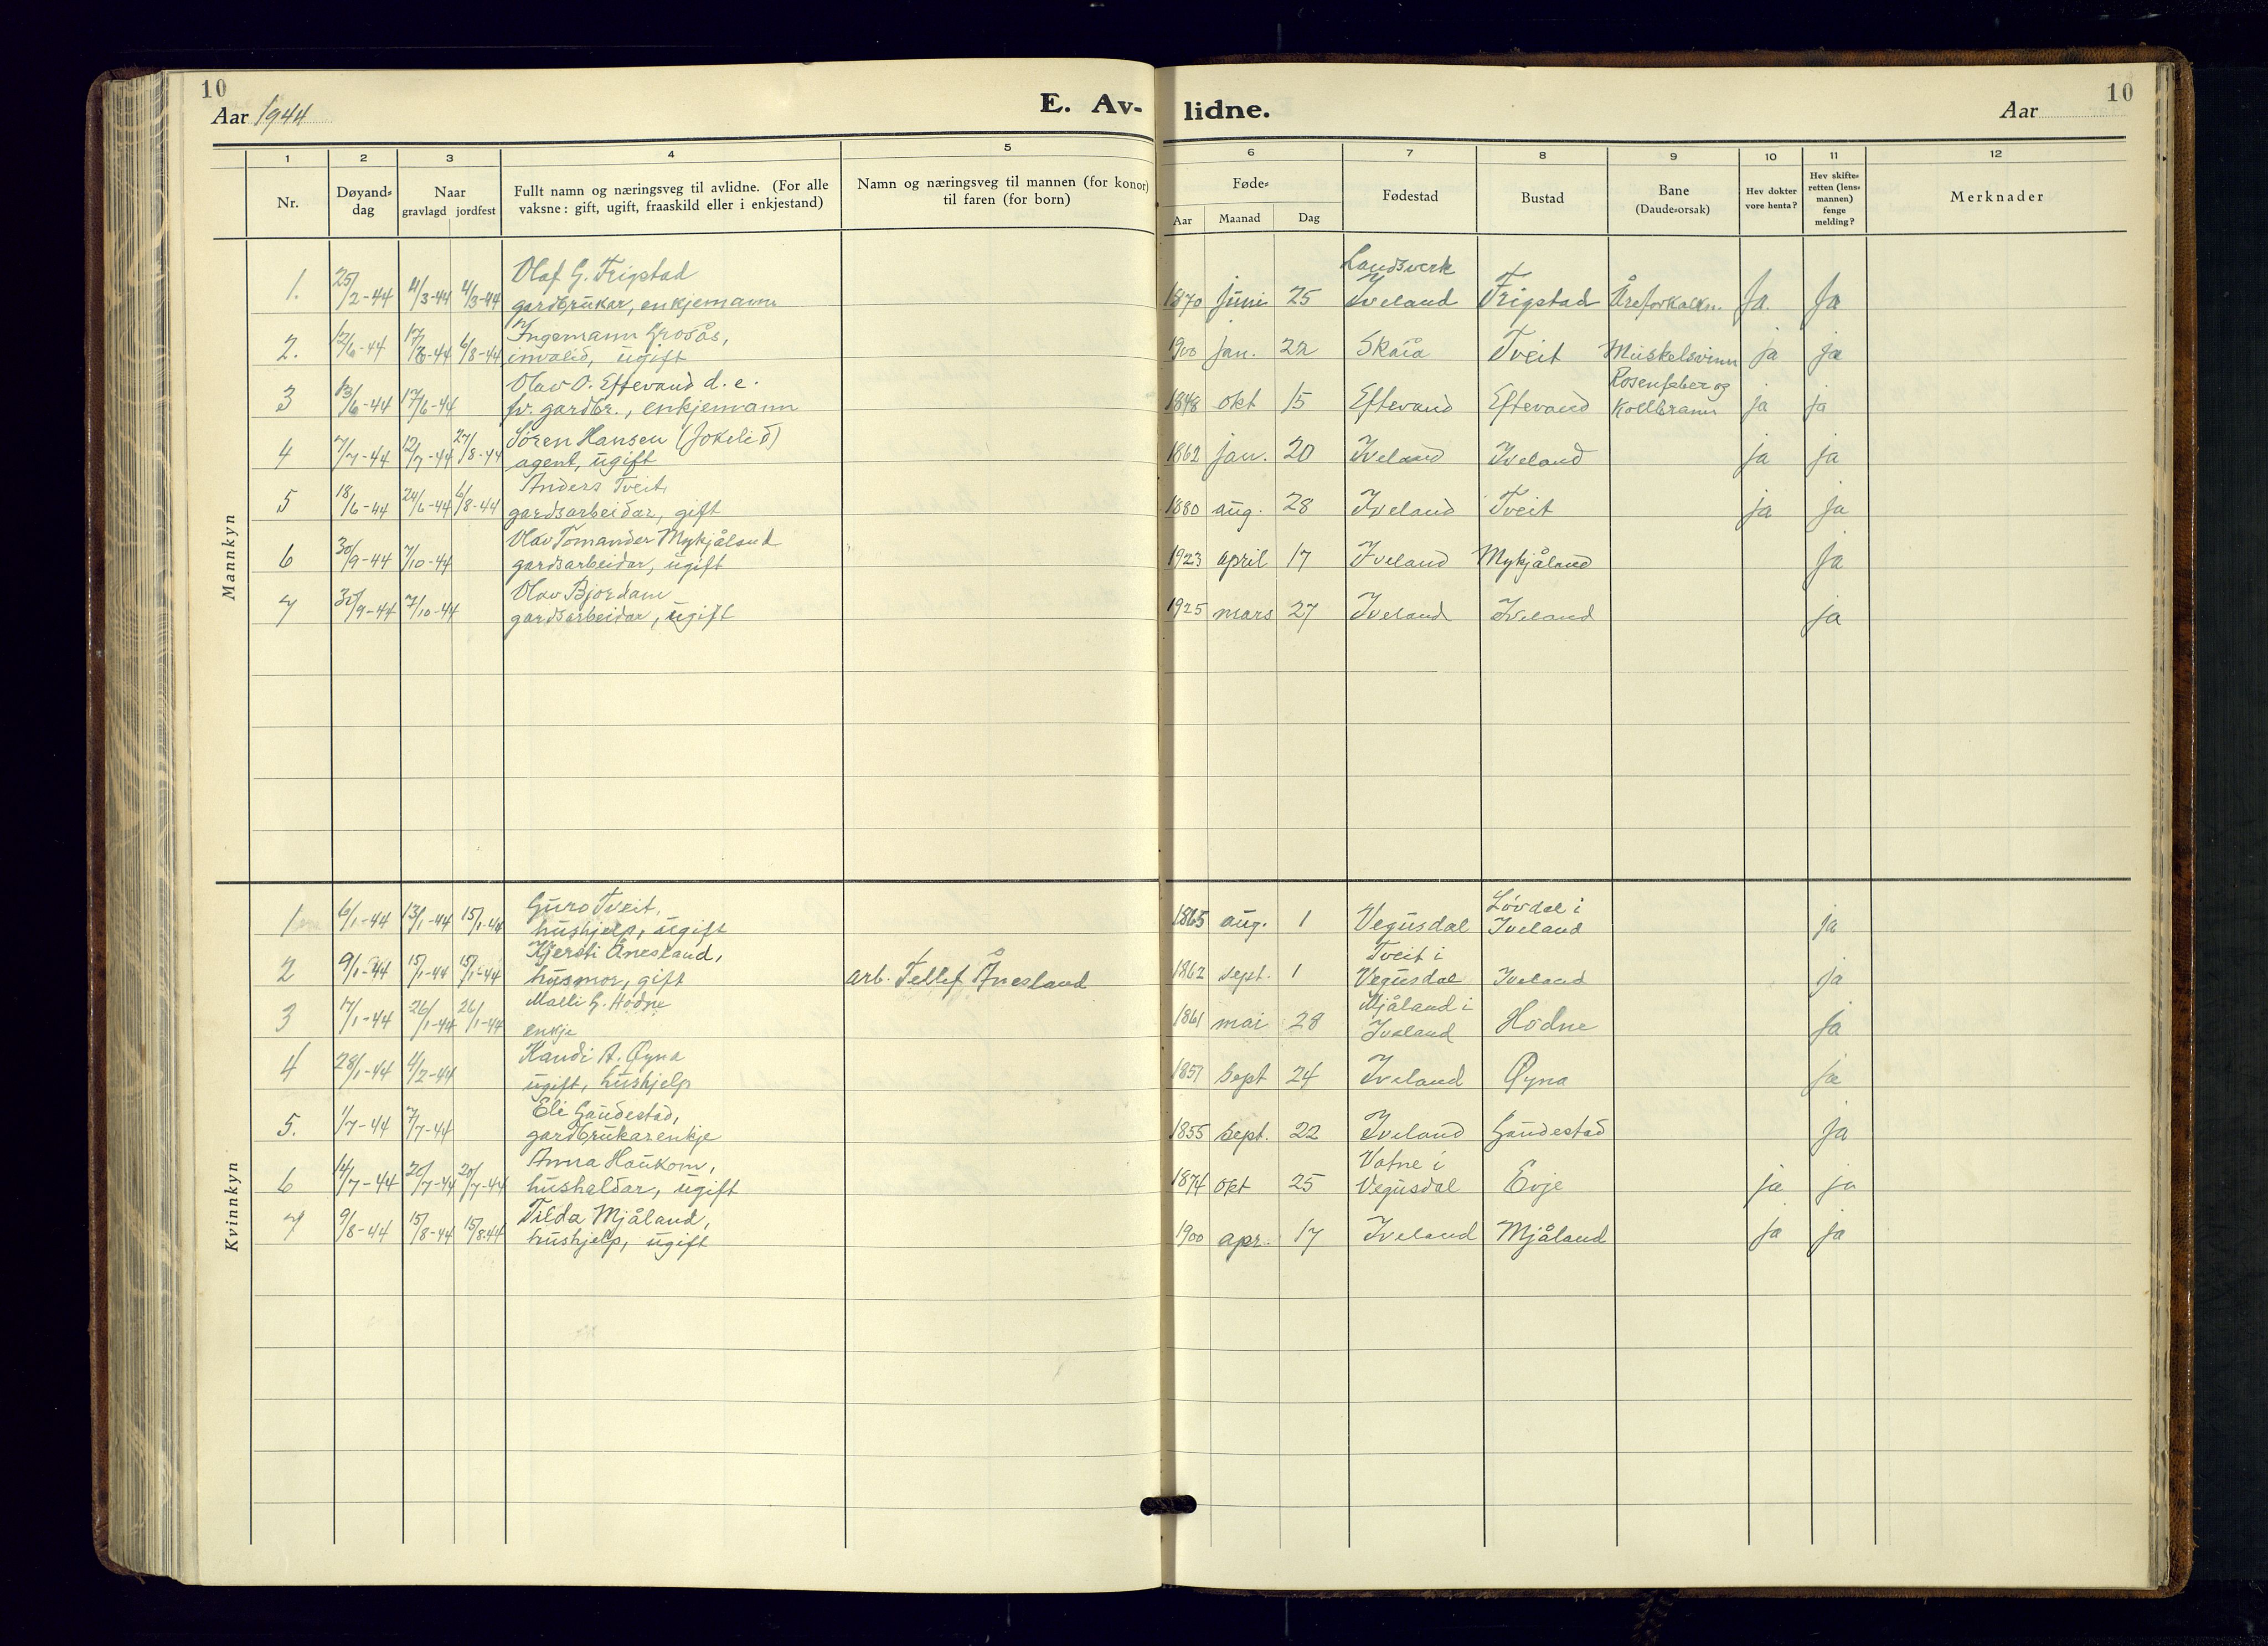 10
Aar 1944
E. Av-lidne.
Aar
10
1 2 3 4 5 6 7 8 9 10 11 12
Nr.
Døyand-dag
Naar
gravlagd jordfest
Fullt namn og næringsveg til avlidne. (For alle
vaksne: gift, ugift, fraaskild eller i enkjestand)
Namn og næringsveg til mannen (for konor)
til faren (for born)
Føde-
Aar Maanad Dag
Fødestad
Bustad
Bane
(Daude-orsak)
Hev dokter
vore henta?
Hev skifte-
retten (lens-
mannen)
fenge
melding?
Merknader
Mannkyn
Olaf G. Frigstad Landsverk
1. 25/2-44 4/3-44 4/3-44 gardbrukar, enkjemann 1870 juni 25 Iveland Frigstad Åreforkalkn. Ja. Ja
Ingemann Grosås,
2. 12/6-44 17/6-44 6/8-44 invalid, ugift 1900 jan. 22 Skaia Tveit Muskelsvinn ja ja
Olav O. Eftevand d. e. Rosenfeber og
3 13/6-44 17/6-44 fv. gardbr., enkjemann 1848 okt 15 Eftevand Eftevand Koldbrann ja ja
Søren Hansen (Jokelid)
4 7/7-44 12/7-44 27/8-44 agent, ugift 1862 jan. 20 Iveland Iveland ja ja
Anders Tveit,
5 18/6-44 24/6-44 6/8-44 gardsarbeidar, gift 1880 aug. 28 Iveland Tveit ja ja
Olav Tomander Mykjåland
6 30/9-44 7/10-44 gardsarbeidar, ugift 1923 april 17 Iveland Mykjåland ja
Olav Bjordam
7 30/9-44 7/10-44 gardsarbeidar, ugift 1925 mars 27 Iveland Iveland ja
Kvinnkyn
Guro Tveit, Løvdal i
1 6/1-44 13/1-44 15/1-44 hushjelp, ugift 1865 aug. 1 Vegusdal Iveland ja
Kjersti Ånesland, Tveit i
2 9/1-44 15/1-44 15/1-44 husmor, gift arb. Tellef Ånesland 1862 sept. 1 Vegusdal Iveland ja
Malli G. Hodne Mjåland i
3 17/1-44 26/1-44 26/1-44 enkje 1861 mai 28 Iveland Hodne ja
Kandi A. Øyna
4 28/1-44 4/2-44 ugift, hushjelp 1857 sept 24 Iveland Øyna ja
Eli Gaudestad,
5. 1/7-44 7/7-44 gardbrukarenkje 1855 sept. 22 Iveland Gaudestad ja
Anna Haukom, Vatne i
6 14/7-44 20/7-44 20/7-44 hushaldar, ugift 1874 okt 25 Vegusdal Evje ja ja
Tilda Mjåland,
7 9/8-44 15/8-44 15/8-44 hushjelp, ugift 1900 apr. 17 Iveland Mjåland ja ja